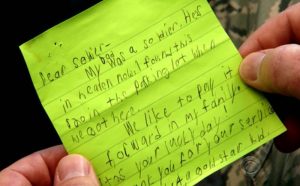 Dear soldier-
My Dad was a soldier. He's
in heaven now. I found this
$20 in the parking lot when
we got here.
We like to pay it
forward in my family.
It's your lucky day!
Thank you for your service.
a gold star kid.